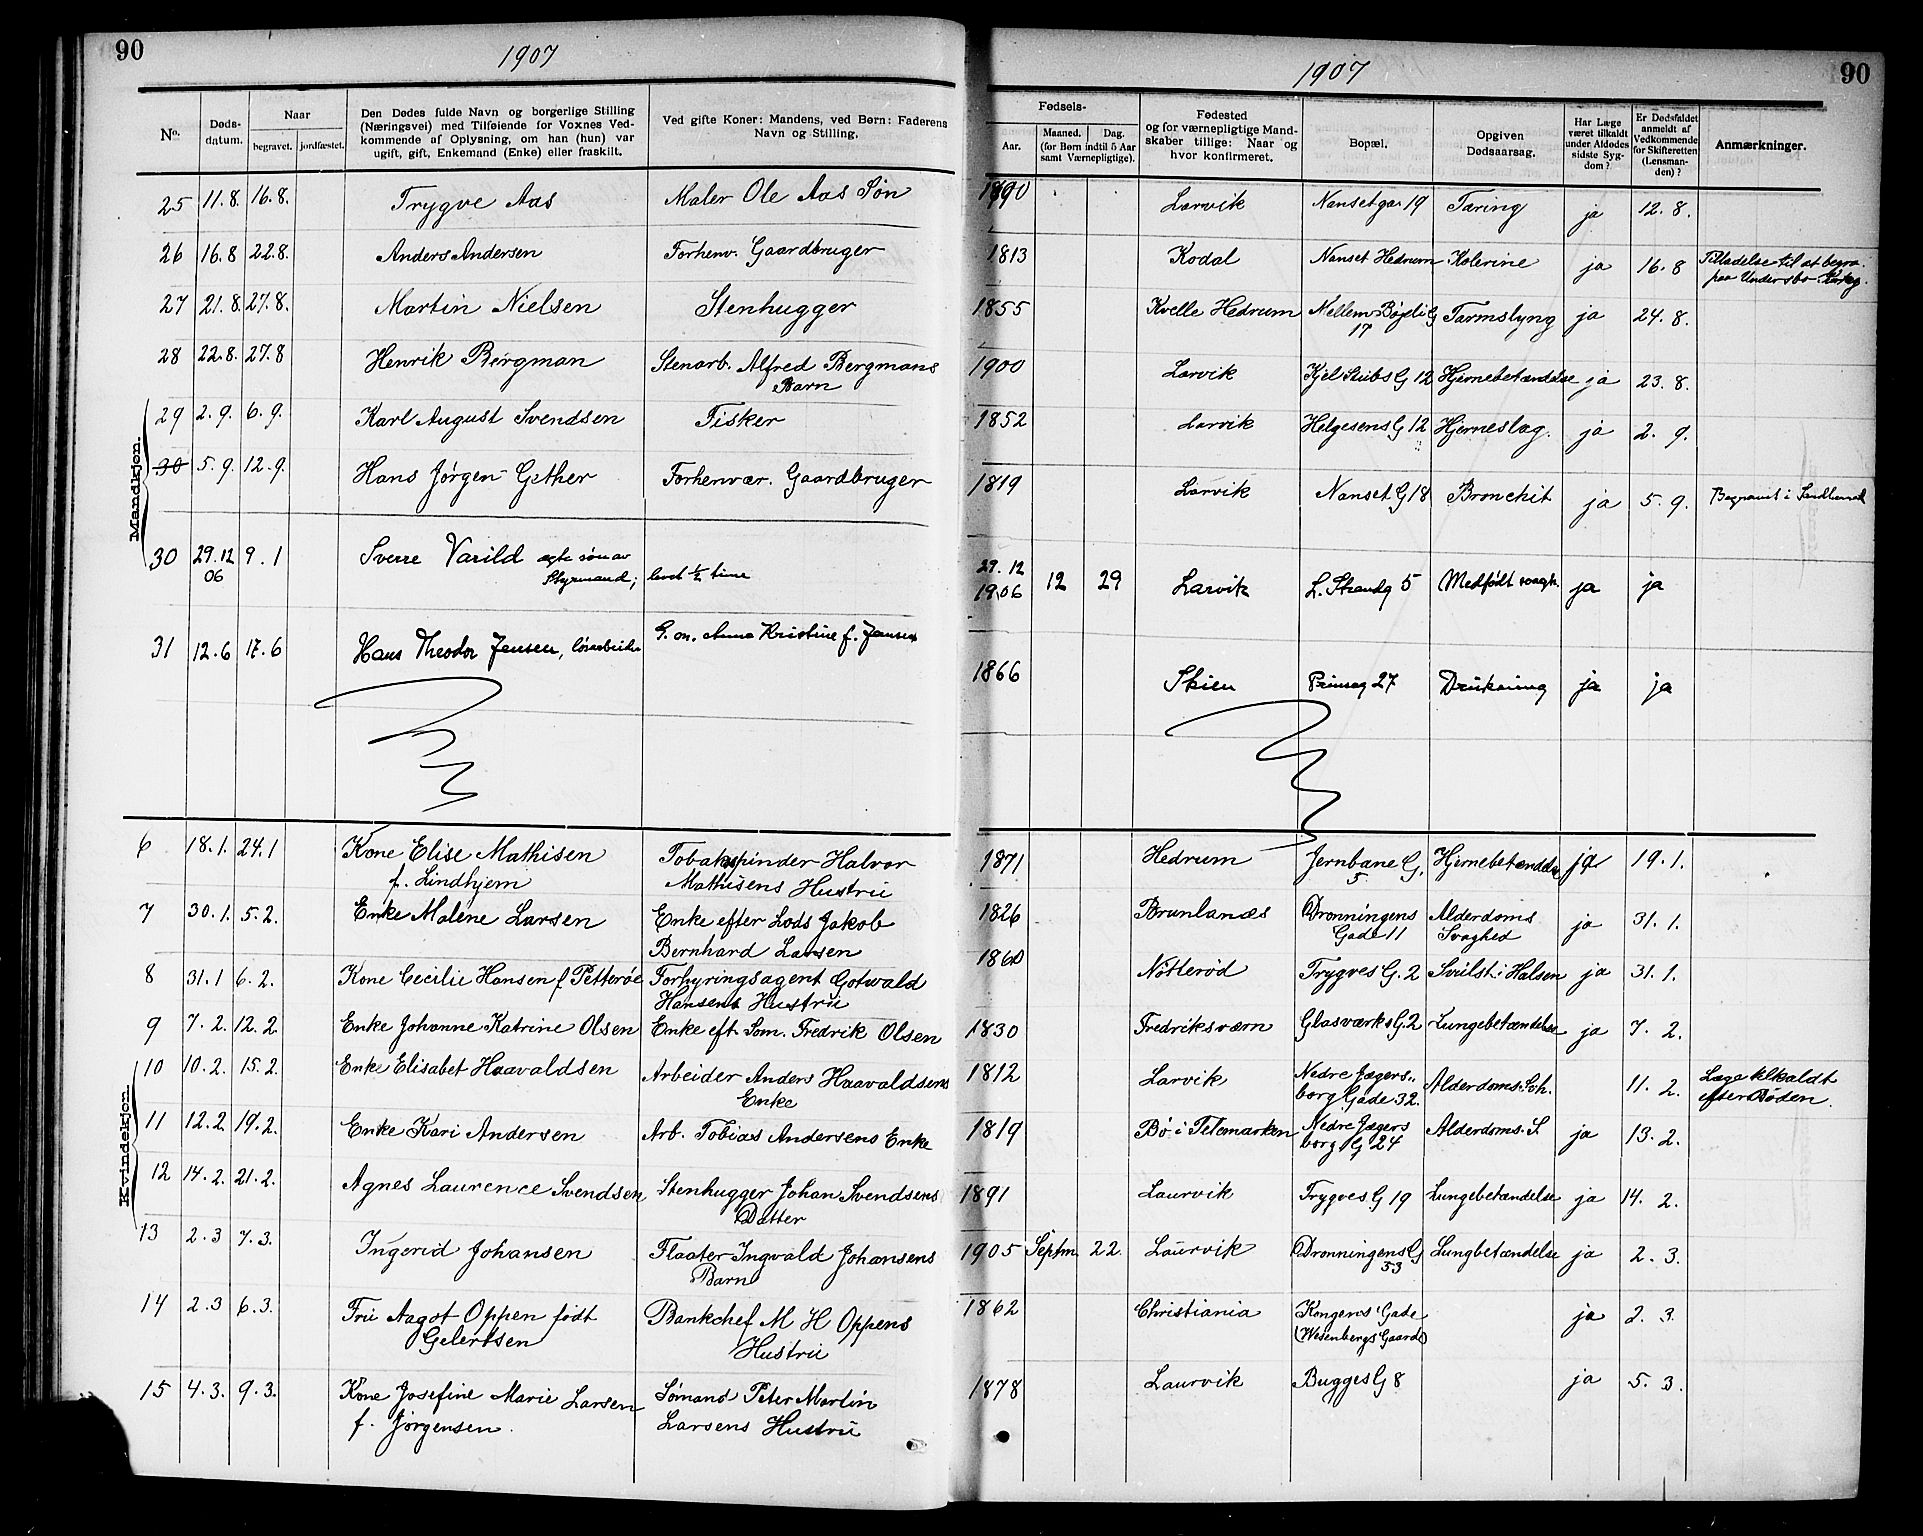 90
1907
1907
90
No.
Døds-
datum.
Naar
begravet. jordfæstet.
Den Dødes fulde Navn og borgerlige Stilling
(Næringsvei) med Tilføiende for Voxnes Ved-
kommende af Oplysning, om han (hun) var
ugift, gift, Enkemand (Enke) eller fraskilt.
Ved gifte Koner: Mandens, ved Børn: Faderens
Navn og Stilling.
Fødsels-
Aar.
Maaned. Dag.
(for Børn indtil 5 Aar
samt Værnepligtige).
Fødested
og for værnepligtige Mand-
skaber tillige: Naar og
hvor konfirmeret.
Bopæl.
Opgiven
Dødsaarsag.
Har Læge
været tilkaldt
under Afdødes
sidste Syg-
dom?
Er Dødsfaldet
anmeldt af
Vedkommende
for Skifteretten
(Lensman-
den)?
Anmærkninger.
Mandkjøn.
25 11.8. 16.8. Trygve Aas Maler Ole Aas Søn 1890 Larvik Nansetga 19 Tæring ja 12.8.
26 16.8 22.8. Anders Andersen Forhenv. Gaardbruger 1813 Kodal Nanset Hedrum Kolerine ja 16.8 Tilladelse til at begra.
paa Undersbo Kirkeg.
27 21.8. 27.8. Martin Nielsen Stenhugger 1855 Kvelle Hedrum Mellem Bøjeli G Tarmslyng ja 24.8.
17
28 22.8. 27.8 Henrik Bergman Stenarb. Alfred Bergmans 1900 Larvik Kjel Stubs G 12 Hjernebetændelse ja 23.8.
Barn
29 2.9. 6.9. Karl August Svendsen Fisker 1852 Larvik Helgesens G 12 Hjerneslag. ja 2.9.
30 5.9. 12.9. Hans Jørgen Gether Forhenvær. Gaardbruger 1819 Larvik Nanset G 18 Bronchit ja 5.9. Begravet i Sandeherred
30 29.12 9.1 Sverre Varild ægte søn av 29.12 12 29 Larvik L. Strandg 5 Medfødt svagh. ja ja
06 Styrmand; levet ½ time 1906
31 12.6 17.6 Hans Theodor Jensen, løsarbeider G. m. Anna Kristine f. Jansen 1866 Skien Prinseg 27 Drukning ja ja
Kvindekjøn.
6 18.1. 24.1 Kone Elise Mathisen Tobakspinder Halvor 1871 Hedrum Jernbane G. Hjernebetændelse ja 19.1.
f. Lindhjem Mathisens Hustru 5
7 30.1. 5.2. Enke Malene Larsen Enke efter Lods Jakob 1826 Brunlanæs Dronningens Alderdoms ja 31.1.
Bernhard Larsen Gade 11 Svaghed
8 31.1 6.2. Kone Cecilie Hansen f Petterøe Forhyringsagent Gotwald 1860 Nötterød Trygves G. 2 Svulst i Halsen ja 31.1.
Hansens Hustru
9 7.2. 12.2. Enke Johanne Katrine Olsen Enke eft. Søm. Fredrik Olsen 1830 Fredriksværn Glasværks G. 2 Lungebetændelse ja 7.2.
10 10.2. 15.2. Enke Elisabet Haavaldsen Arbeider Anders Haavaldsens 1812 Larvik Nedre Jægers- Alderdoms. Svh. 11.2. Læge tilkaldt
Enke borg Gade 32. efter Døden.
11 12.2. 19.2. Enke Kari Andersen Arb. Tobias Andersens Enke 1819 Bø i Telemarken Nedre Jægers Alderdoms. S ja 13.2.
borg G 24
12 14.2. 21.2. Agnes Laurence Svendsen Stenhugger Johan Svendsens 1891 Laurvik Trygves G 19 Lungebetændelse ja 14.2.
Datter
13 2.3 7.3. Ingerid Johansen Flaater Ingvald Johansens 1905 Septm. 22. Laurvik Dronningens G Lungbetændelse ja 2.3.
Barn 53
14 2.3 6.3. Fru Aagot Oppen født Bankchef M H Oppens 1862 Christiania Kongens Gade ja 2.3.
Gelertsen Hustru (Wesenbergs Gaard)
15 4.3. 9.3. Kone Josefine Marie Larsen Sømand Peter Martin 1878 Laurvik Bugges G 8 ja 5.3.
f. Jørgensen. Larsens Hustru